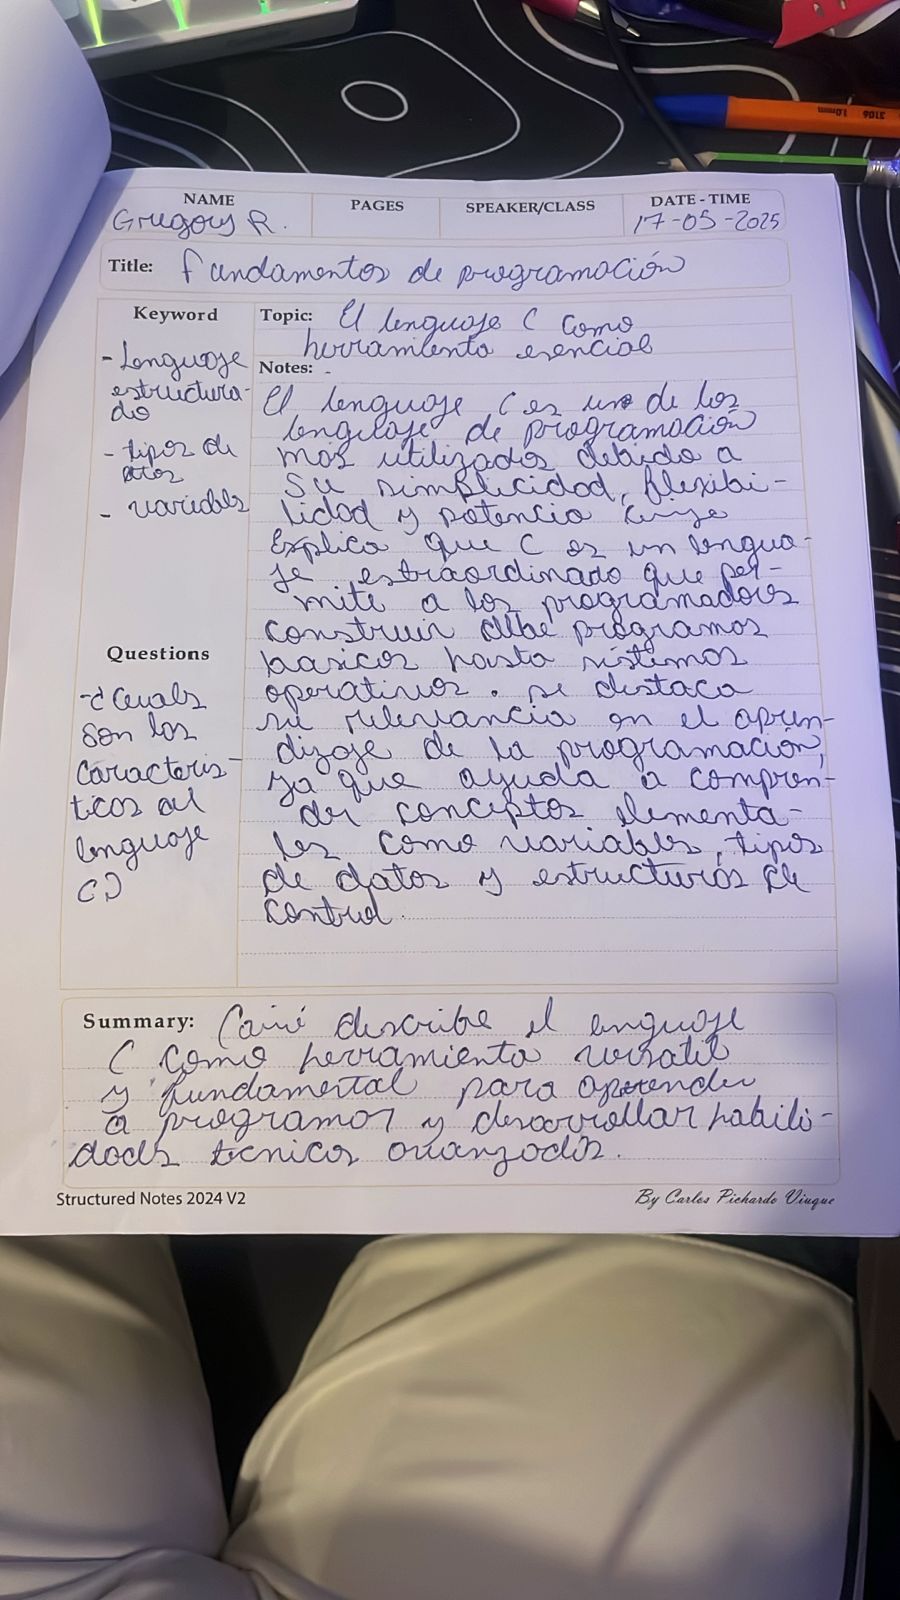 NAME
Gregory R.
PAGES
SPEAKER/CLASS
DATE - TIME
17-05-2025
Title: Fundamentos de programación
Keyword
- Lenguaje
estructura-
do
- tipos de
- variables
Questions
-¿Cuales
son los
caracterís-
ticas del
lenguaje
C?
Topic: El lenguaje C como
herramienta esencial
Notes: -
El lenguaje C es uno de los
lenguaje de programación
más utilizados debido a
su simplicidad, flexibi-
lidad y potencia
explica que C es un lengua-
je extraordinario que per-
mite a los programadores
construir debe programas
basicos hasta sistemas
operativos. se destaca
su relevancia en el apren-
dizaje de la programación,
ya que ayuda a compren-
der conceptos elementa-
les como variables, tipos
de datos y estructuras de
control.
Summary: describe el enguaje
C como herramienta versatil
y fundamental para aprender
a programar y desarrollar habili-
dades tecnicas avanzadas.
Structured Notes 2024 V2
By Carlos Pichardo Viuque
3106
1.0mm